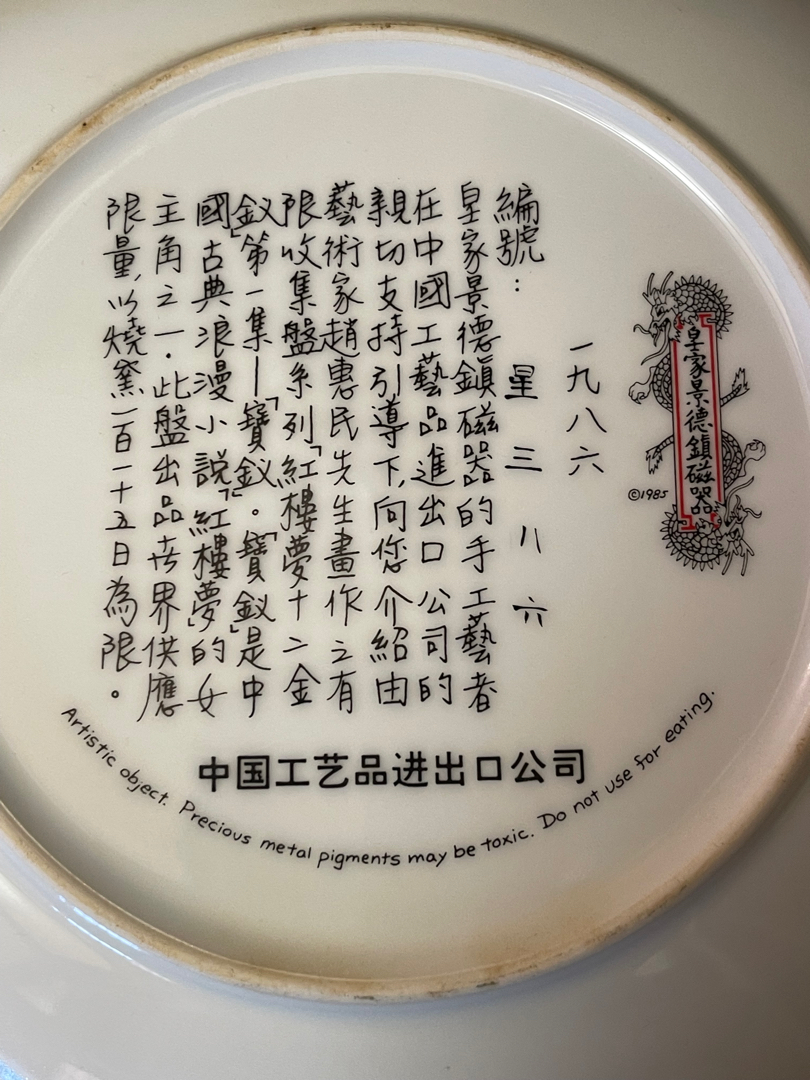 皇家景德鎮磁器
©1985
一九八六
編號：星三八六
皇家景德鎮磁器的手工藝者
在中國工藝品進出口公司的
親切支持引導下,向您介紹由
藝術家趙惠民先生畫作之有
限收集盤系列「紅樓夢十二金
釵」第一集—「寶釵」。「寶釵」是中
國古典浪漫小說「紅樓夢」的女
主角之一.此盤出品世界供應
限量,以燒窯一百一十五日為限。
中国工艺品进出口公司
Artistic object. Precious metal pigments may be toxic. Do not use for eating.